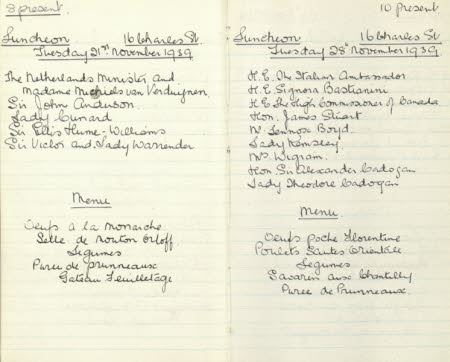 8 present
Luncheon 16 Charles St.
Tuesday 21st November 1939
The Netherlands Minister and
Madame Michiels van Verduynen.
Sir John Anderson.
Lady Cunard.
Sir Ellis Hume-Williams
Sir Victor and Lady Warrender
Menu
Oeufs a la Monarche.
Selle de Mouton Orloff.
Legumes
Puree de prunneaux
Gateau Feuilletage
10 present
Luncheon 16 Charles St
Tuesday 28th November 1939
H.E. The Italian Ambassador
H.E. Signora Bastianini
H.E. The High Commissioner of Canada.
Hon. James Stuart.
Mr. Lennox Boyd.
Lady Kemsley.
Mrs Wigram.
Hon Sir Alexander Cadogan
Lady Theodore Cadogan
Menu.
Oeufs poche Florentine
Poulets Sautes Orientale
Legumes
Savarin aux Chantilly
Puree de Prunneaux.